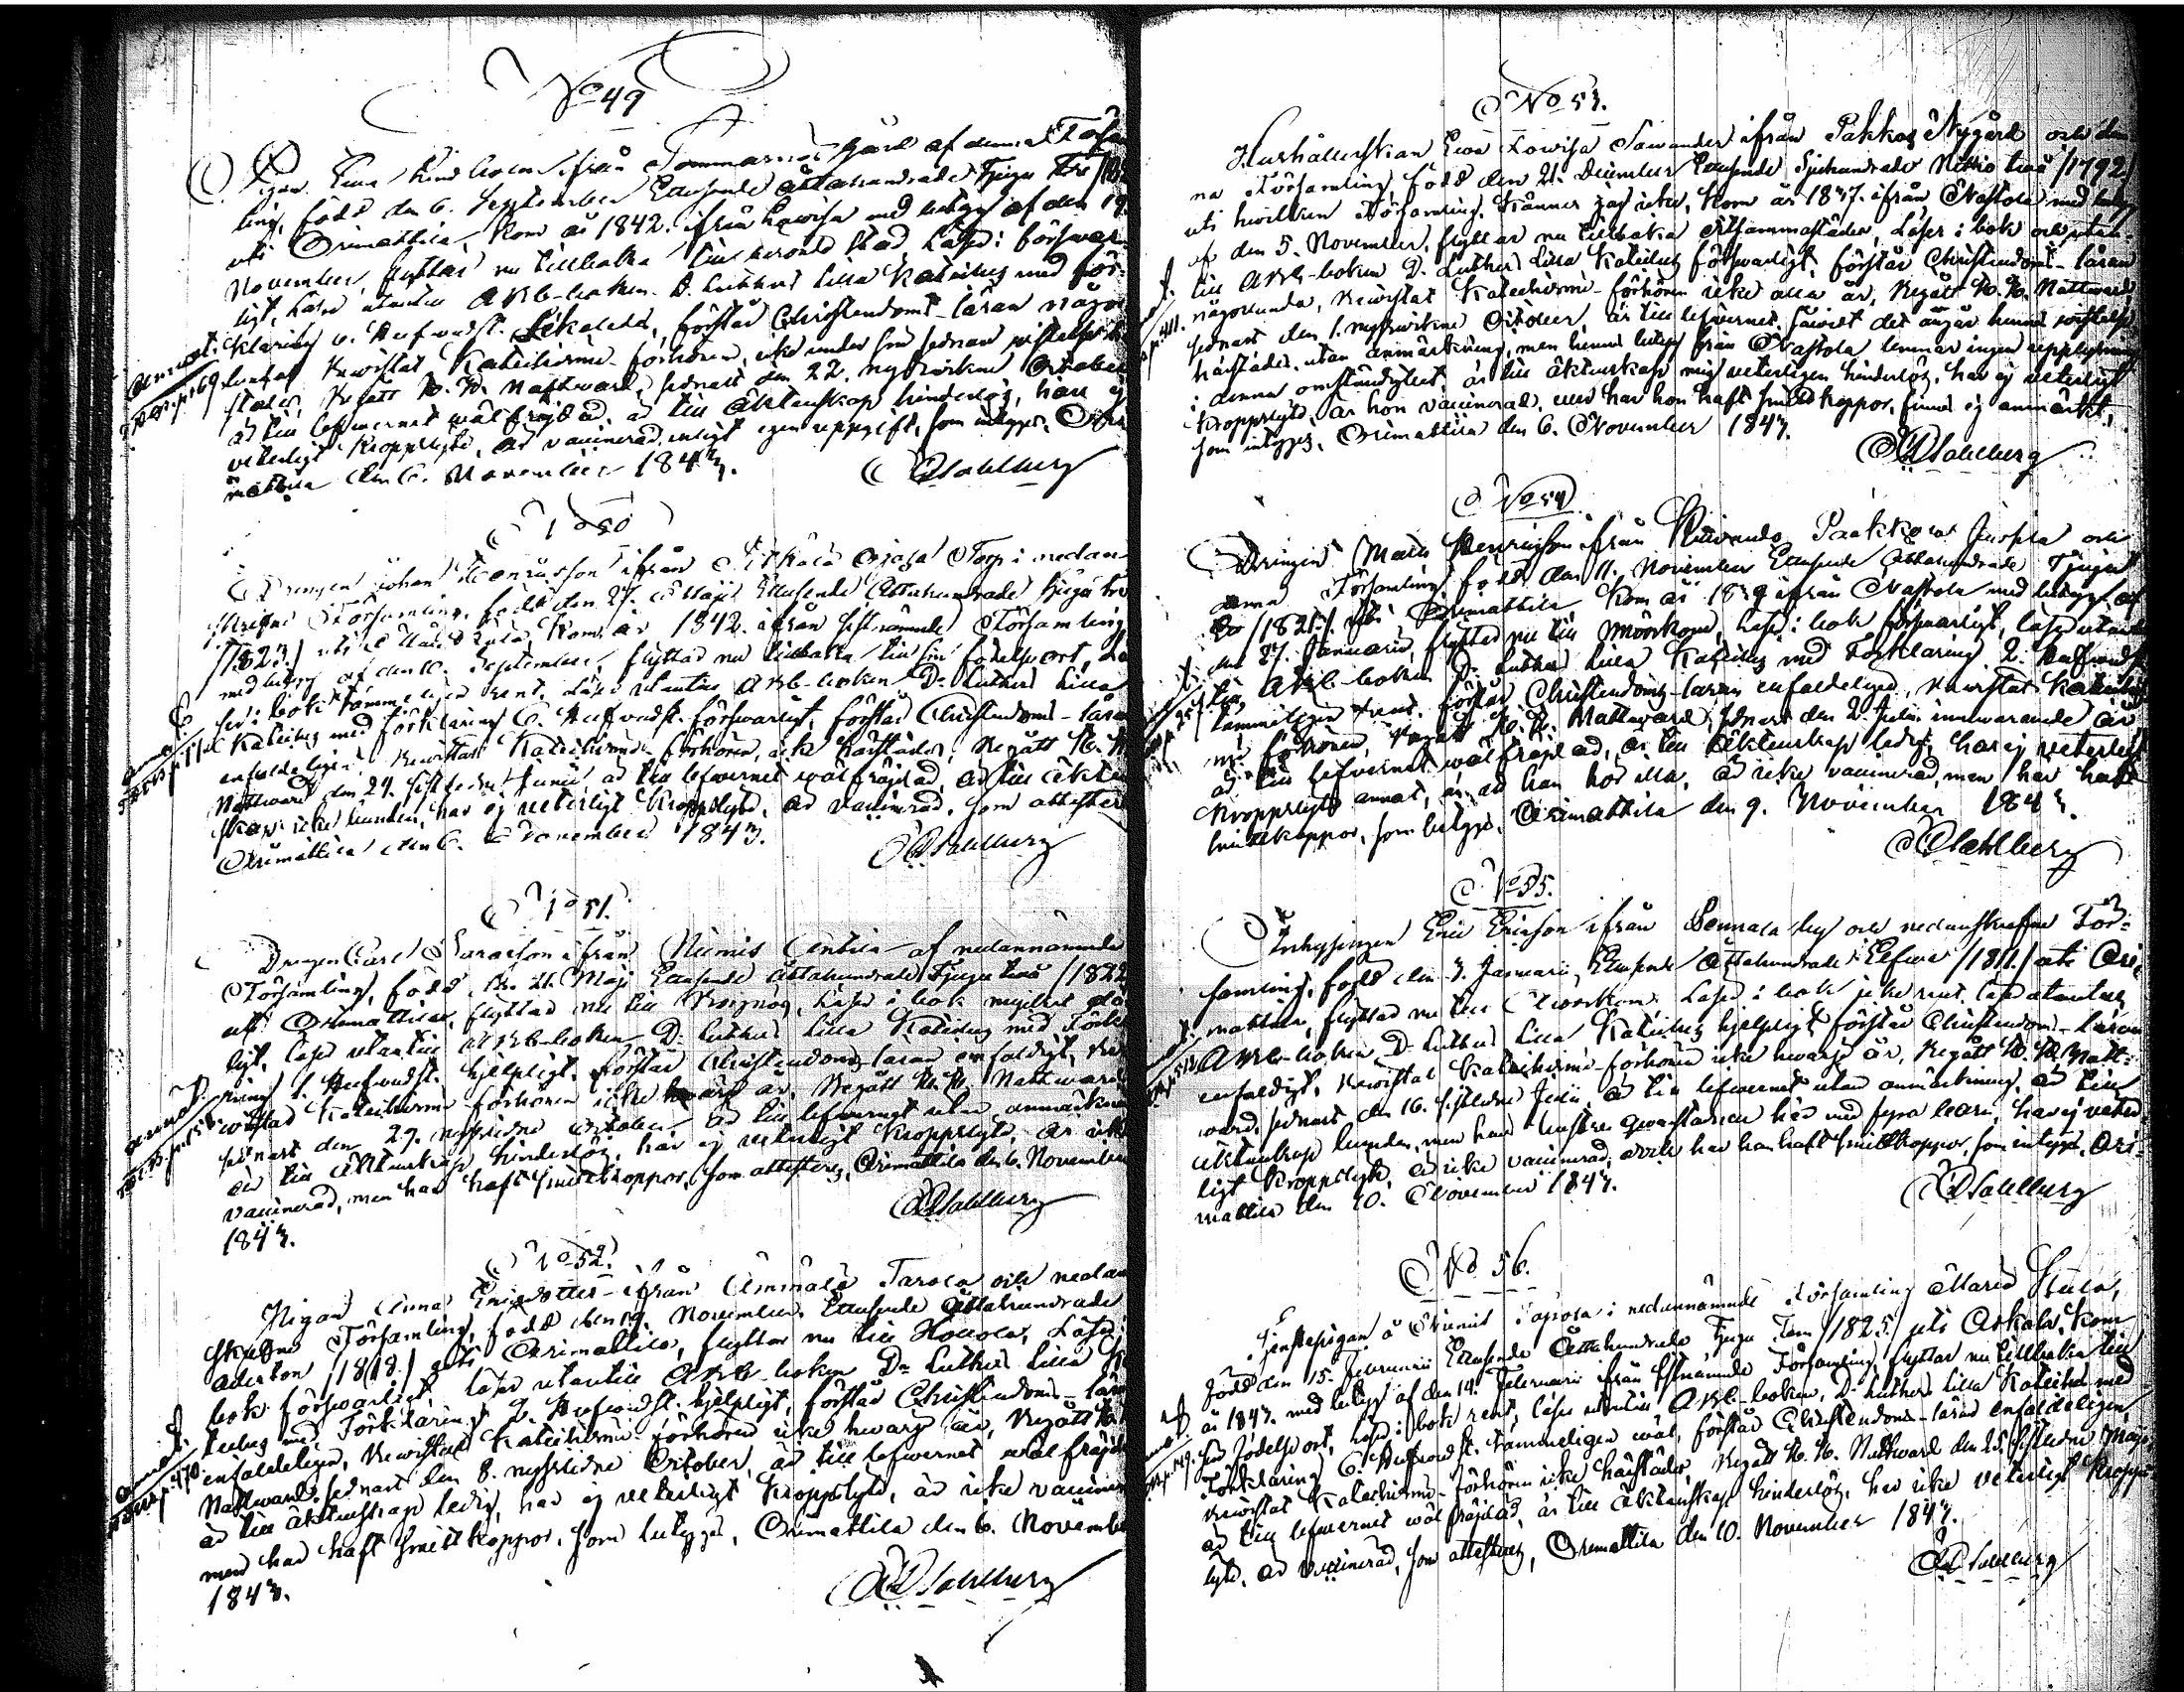 No 49
Pigan Lena Lindholm ifrån Tommarnäs Gård af denna Försam
ling, född den 6. September Ettusende Åttahundrade Tjugu Tre
uti Orimattila, kom år 1842. ifrån Lowisa med betyg af den 19.
November, flyttar nu tillbaka till berörde stad, Läser i bok förswar
ligt, läser utantill ABC-boken D. Luthers Lilla Kateches med för-
klaring 6. Hufwudst. förstår Christendoms-läran någor
lunda, bewistat Katechismi-förhören, icke under sin sednare
städes, Begått H. H. Nattward, sednast den 22. nystwikne October
är till lefwernet wälfräjdad, är till äktenskap hinderlös, har ej
veterligt kroppslyte, är vaccinerad, enligt egen uppgift, som intygas, Ori
mattila den 6. November 1843.
Sahlberg
No 50
Drengen Johan Henricsson ifrån Torp i nedan
skrifne Församling, född den 27. Maji Ettusende Åttahundrade tjugu tre
/1823./ uti kom år 1842. ifrån sistnämnde Församling
med betyg af den 10. September, flyttar nu tillbaka till sin födelseort, lä
ser i bok tämmeligen rent, läser utantill ABC-boken Dr. Luthers Lilla
Kateches med förklaring 6. Hufwudst. förswarligt, förstår Christendoms-läran
enfaldeligen, bewistat Katechismi-förhören, icke härstädes, Begått H. H.
Nattward den 24. sistledne Junii, är till lefwernet wälfräjdad, är till äkten
skap icke bunden, har ej veterligt kroppslyte, är vaccinerad, som attesteras
Orimattila den 6. November 1843.
Sahlberg
No 51.
Drengen Carl ifrån Niinis Anttila af nedannämnde
Församling, född den 21. Maji Ettusende Åttahundrade Tjugu två /1822
uti Orimattila, flyttar nu till Läser i bok mycket då
ligt, läser utantill ABC-boken D. Luthers Lilla Kateches med Förkla
ring 1 Hufwudst. hjelpligt, förstår Christendoms läran enfaldigt, be
wistat Katechismi-förhören icke hwarje år, Begått H. H. Nattward
sednast den 29. nystledne October, är till lefwernet utan anmärkning
är till Äktenskap hinderlös, har ej veterligt kroppslyte, är icke
vaccinerad, men har haft smittkoppor, som attesteras, Orimattila den 6. November
1843.
Sahlberg
No 52.
Pigan Anna Ericsdotter ifrån Ammälä Tarola och nedan
skrifne Församling, född den 19. November, Ettusende Åttahundrade
Aderton /1818./ uti Orimattila, flyttar nu till Hollola, Läser i
bok förswarligt, läser utantill ABC-boken Dr. Luthers Lilla
teches med Förklaring 2 Hufwudst. hjelpligt, förstår Christendoms-läran
enfaldeligen, bewistat Katechismi-förhören icke hwarje år, Begått H.
Nattward, sednast den 8. nystledne October, är till lefwernet wälfräjdad
är till äktenskap ledig, har ej veterligt kroppslyte, är icke vaccinerad
men har haft smittkoppor, som betygas, Orimattila den 6. November
1843.
Sahlberg
No 53.
Hushållerskan Ewa Lowisa Sawander ifrån Pakkas Nygård och den
na Församling, född den 21. December Ettusende Sjuhundrade Nittio två /1792/
uti hwilken Församling, känner jag icke, kom år 1837. ifrån Nastola med betyg
af den 5. November, flyttar nu tillbaka ditsammastädes, Läser i bok och utan-
till ABC-boken D. Luthers Lilla Kateches förswarligt, förstår Christendoms-läran
någorlunda, bewistat Katechismi-förhören icke alla år, Begått H. H. Nattward
sednast den 1. nystwikne October, är till lefwernet, såwidt det angår hennes wistelse
härstädes, utan anmärkning, men hennes betyg från Nastola lemnar ingen upplysning
i denna omständighet, är till äktenskap mig veterligen hinderlös, har ej veterligt
kroppslyte, är hon vaccinerad, eller har hon haft smittkoppor, finnes ej anmärkt,
som intygas, Orimattila den 6. November 1843.
Sahlberg
No 54
Drengen Matts Henricsson från Paakkola och
denna Församling, född den 11. November Ettusende Åttahundrade Tjugu
/1821./ uti Orimattila, kom år 1839 ifrån Nastola med betyg af
den 27. Januarii, flyttar nu till Mörskom, läser i bok förswarligt, läser utan
till ABC-boken Dr. Luthers Lilla Kateches med Förklaring 2. Hufwudst
tämmeligen rent, förstår Christendoms-läran enfaldeligen, bewistat Katechis
mi-förhören, Begått H. H. Nattward, sednast den 2. Julii innewarande år
är till lefwernet wälfräjdad, är till äktenskap ledig, har ej veterligt
kroppslyte annat, än att han hör illa, är icke vaccinerad, men har haft
smittkoppor, som betygas. Orimattila den 9. November 1843.
Sahlberg
No 55.
Inhysingen Eric Ericsson ifrån Sennala by och nedanskrefne För-
samling, född den 3. Januarii, Ettusende Åttahundrade Elfwa /1811./ uti Ori-
mattila, flyttar nu till Mörskom. Läser i bok icke rent, läser utantill
ABC-boken D. Luthers Lilla Kateches hjelpligt, förstår Christendoms-läran
enfaldigt, bewistat Katechismi-förhören icke hwarje år, Begått H. H. Natt-
ward, sednast den 16. sistledne Julii, är till lefwernet utan anmärkning, är till
äktenskap bunden, men hans hustru qwarstannar här med fyra barn, har ej veter
ligt kroppslyte, är icke vaccinerad, men har haft smittkoppor, som intygas. Ori-
mattila den 10. November 1843.
Sahlberg
No 56.
Tjenstepigan å Niinis i nedannämnde Församling Maria
född den 15. Februarii Ettusende Åttahundrade Tjugu Fem /1825./ uti Askola, kom
år 1843. med betyg af den 14. Februarii ifrån sistnämnde Församling, flyttar nu tillbaka till
sin födelseort, läser i bok rent, läser utantill ABC-boken, D. Luthers Lilla Kateches med
Förklaring 6. Hufwudst. tämmeligen wäl, förstår Christendoms-läran enfaldeligen,
bewistat Katechismi-förhören icke härstädes, Begått H. H. Nattward den 25. sistledne Maji
är till lefwernet wälfräjdad, är till äktenskap hinderlös, har icke veterligt kropps-
lyte, är vaccinerad, som attesteras, Orimattila den 10. November 1843.
Sahlberg